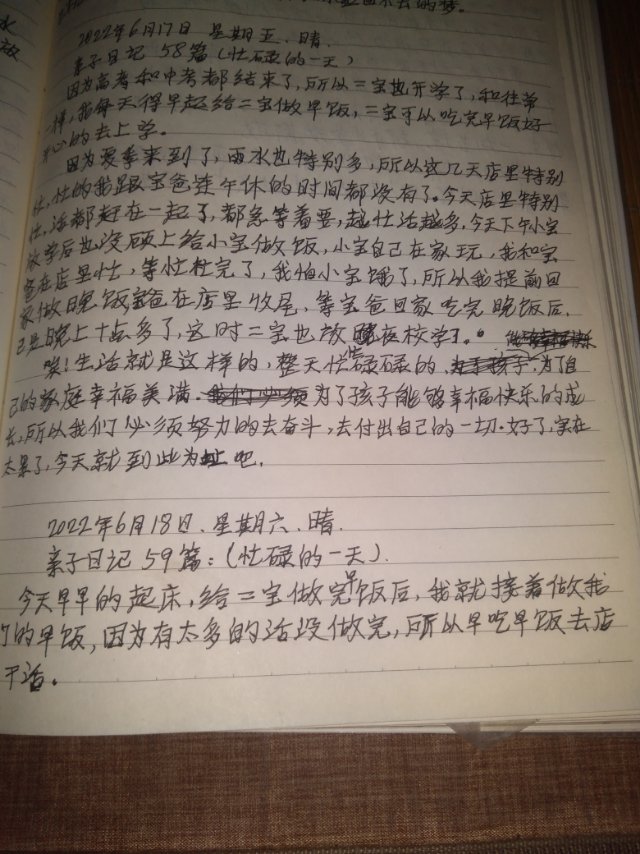 水
放
2022年6月17日 星期五.晴.
亲子日记 58篇(忙碌的一天)
因为高考和中考都结束了,所以二宝也开学了,和往常
一样,我每天得早起给二宝做早饭,二宝可以吃完早饭好
开心的去上学。
因为夏季来到了,雨水也特别多,所以这几天店里特别
忙,忙的我跟宝爸连午休的时间都没有了。今天店里特别
忙,活都赶在一起了,都急等着要,越忙活越多,今天下午小宝
放学后也没顾上给小宝做饭,小宝自己在家玩,我和宝
爸在店里忙,等忙杜完了,我怕小宝饿了,所以我提前回
家做晚饭宝爸在店里收尾,等宝爸回家吃完晚饭后.
已是晚上十点多了,这时二宝也放晚夜校学了。
唉!生活就是这样的,整天忙忙碌碌的,为了自
己的家庭幸福美满.为了孩子能够幸福快乐的成
长,所以我们必须努力的去奋斗,去付出自己的一切.好了,实在
太累了,今天就到此为止吧.
2022年6月18日.星期六.晴.
亲子日记 59篇:(忙碌的一天).
今天早早的起床,给二宝做完早饭后,我就接着做我
们的早饭,因为有太多的活没做完,所以早吃早饭去店
干活。